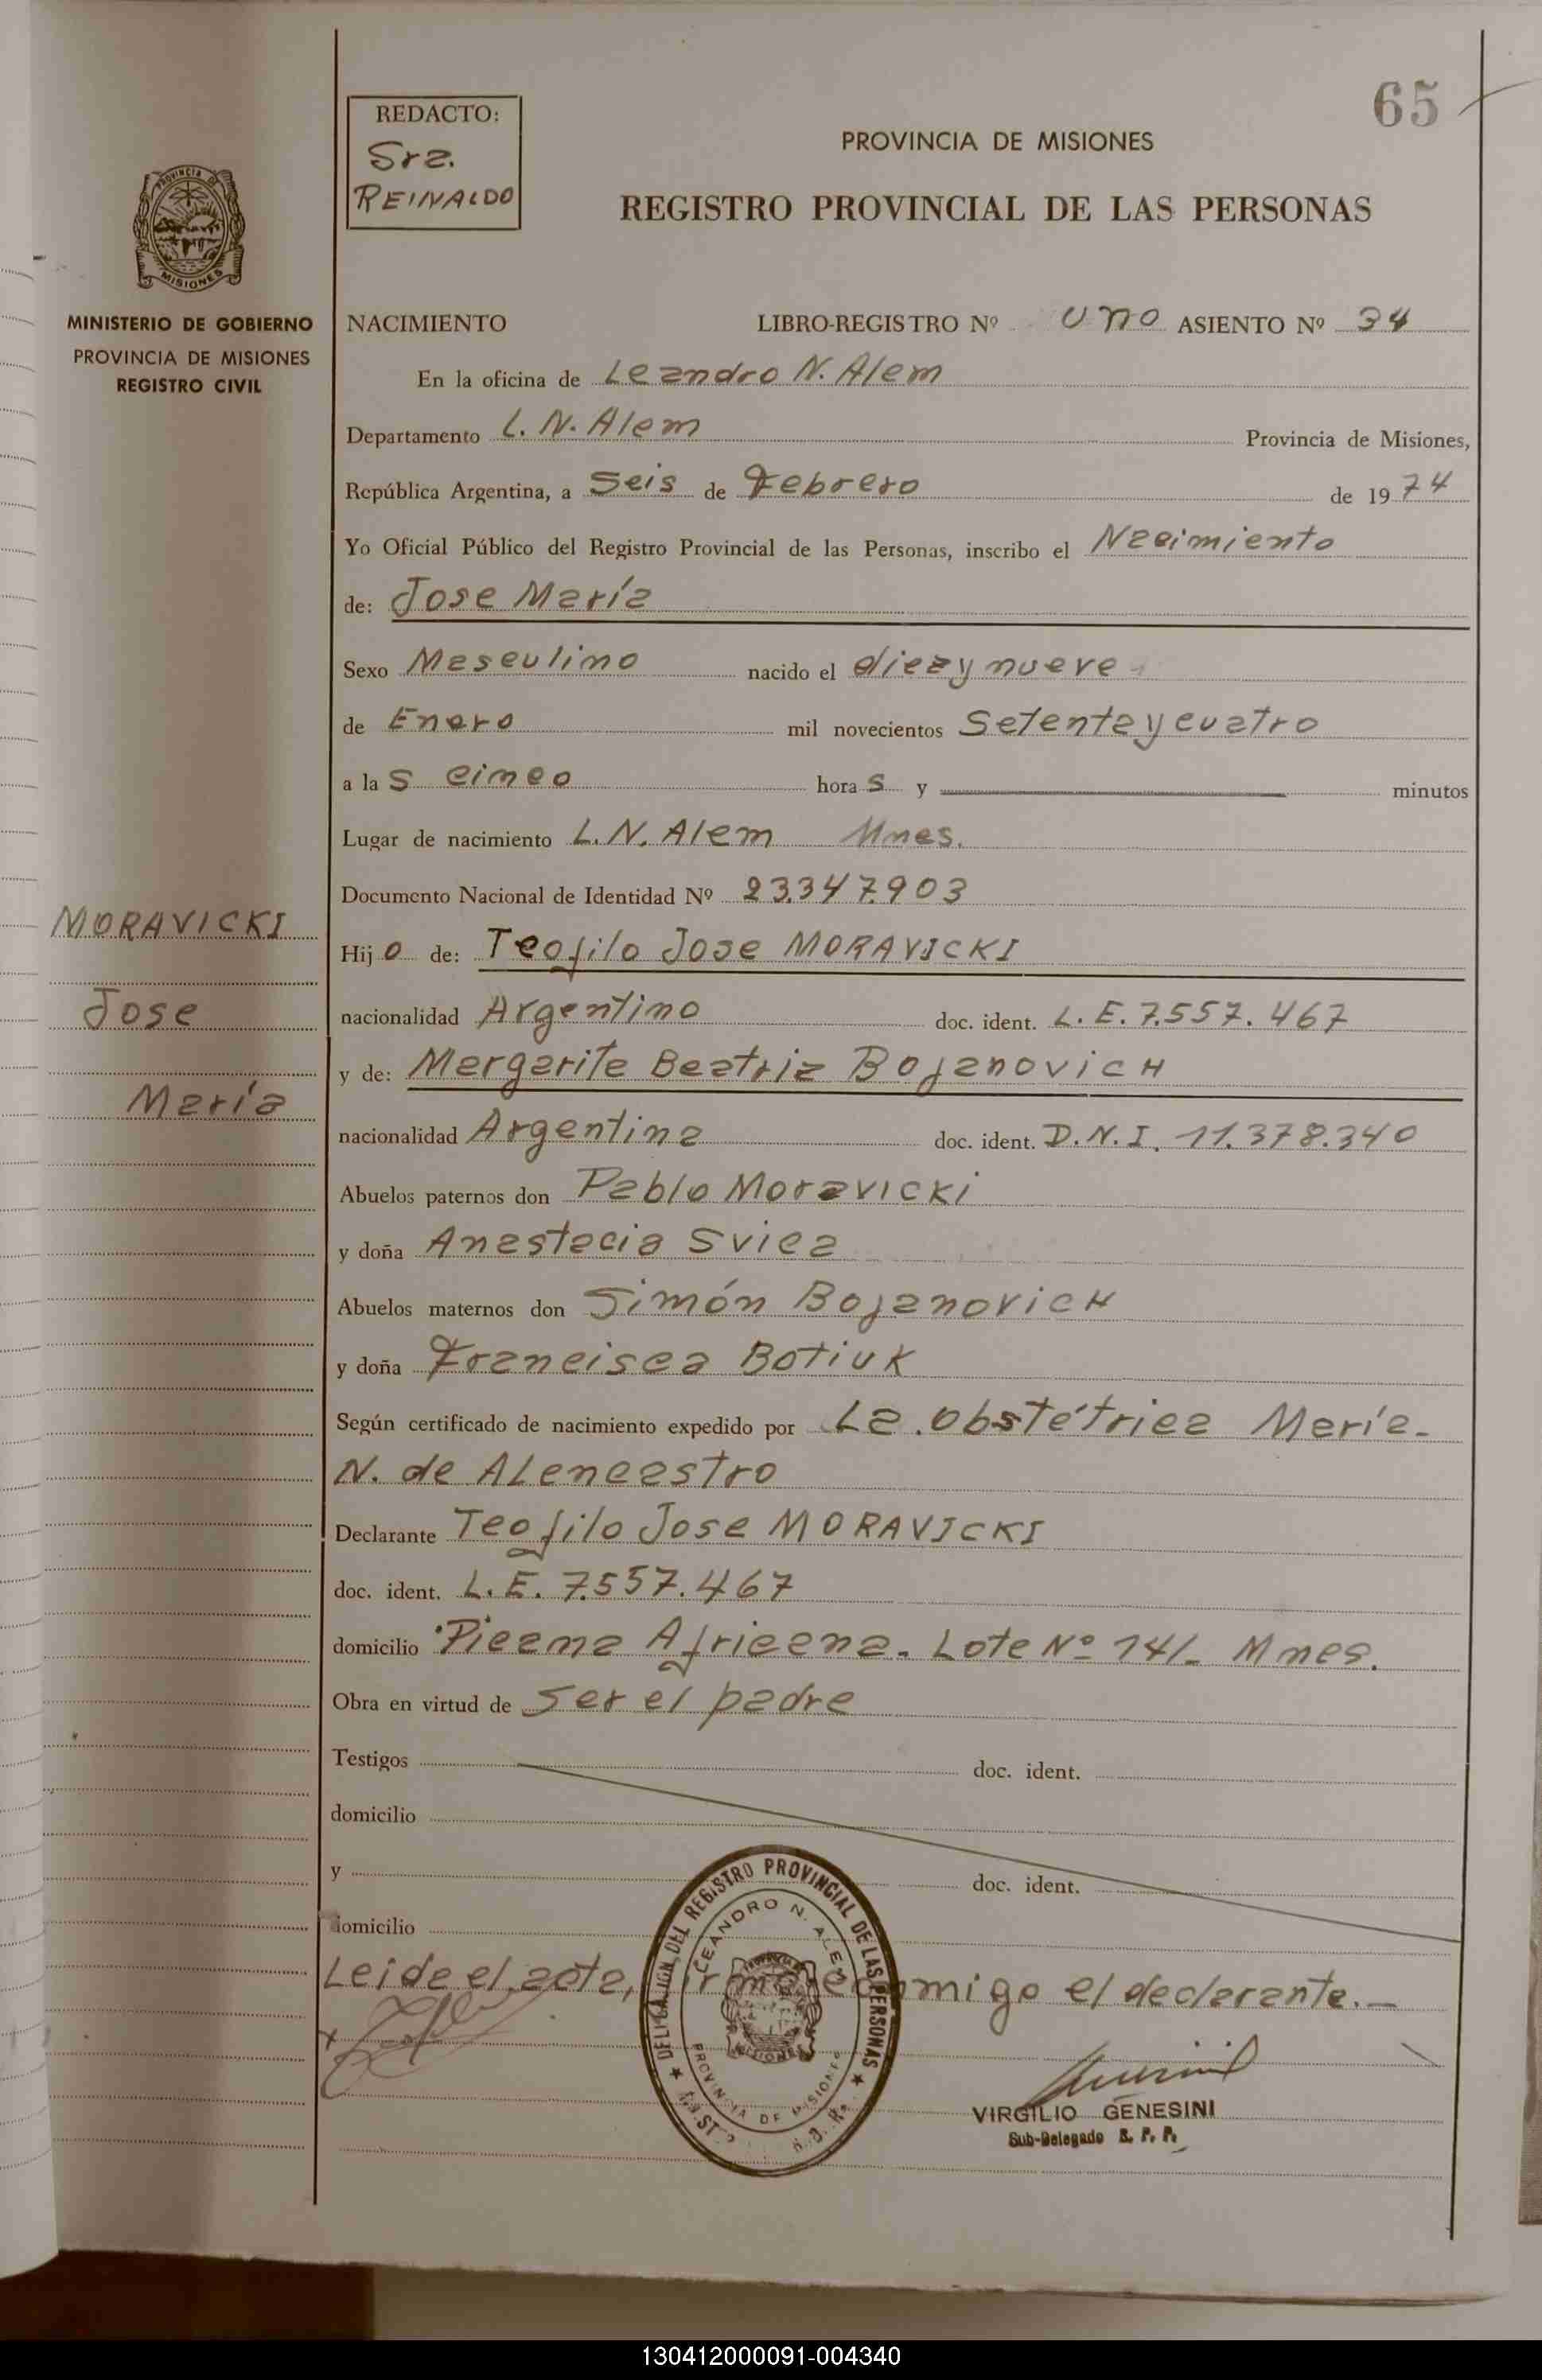 65
REDACTO:
Sra.
REINALDO
PROVINCIA DE MISIONES
REGISTRO PROVINCIAL DE LAS PERSONAS
PROVINCIA DE
MISIONES
MINISTERIO DE GOBIERNO
PROVINCIA DE MISIONES
REGISTRO CIVIL
NACIMIENTO LIBRO-REGISTRO Nº uno ASIENTO Nº 34
En la oficina de Leandro N. Alem
Departamento L. N. Alem Provincia de Misiones,
República Argentina, a Seis de Febrero de 1974
Yo Oficial Público del Registro Provincial de las Personas, inscribo el Nacimiento
de: Jose María
Sexo Masculino nacido el diez y nueve
de Enero mil novecientos Setenta y cuatro
a las cinco horas y minutos
Lugar de nacimiento L. N. Alem Mnes.
Documento Nacional de Identidad Nº 23.347.903
MORAVICKI
Jose
María
Hijo de: Teofilo Jose MORAVICKI
nacionalidad Argentino doc. ident. L. E. 7.557.467
y de: Margarita Beatriz BojanovicH
nacionalidad Argentina doc. ident. D. N. I. 11.378.340
Abuelos paternos don Pablo Moravicki
y doña Anastacia Svica
Abuelos maternos don Simón BojanovicH
y doña Francisca Botiuk
Según certificado de nacimiento expedido por La Obstétrica María
N. de Alencastro
Declarante Teofilo Jose MORAVICKI
doc. ident. L. E. 7.557.467
domicilio Picana Africana. Lote Nº 141- Mnes.
Obra en virtud de Ser el padre
Testigos doc. ident.
domicilio
y doc. ident.
domicilio
Leida el acta, firma conmigo el declarante.-
DEL REGISTRO PROVINCIAL DE LAS PERSONAS
LEANDRO N. ALEM
MISIONES
PROVINCIA DE MISIONES
VIRGILIO GENESINI
Sub-Delegado R. P. P.
130412000091-004340